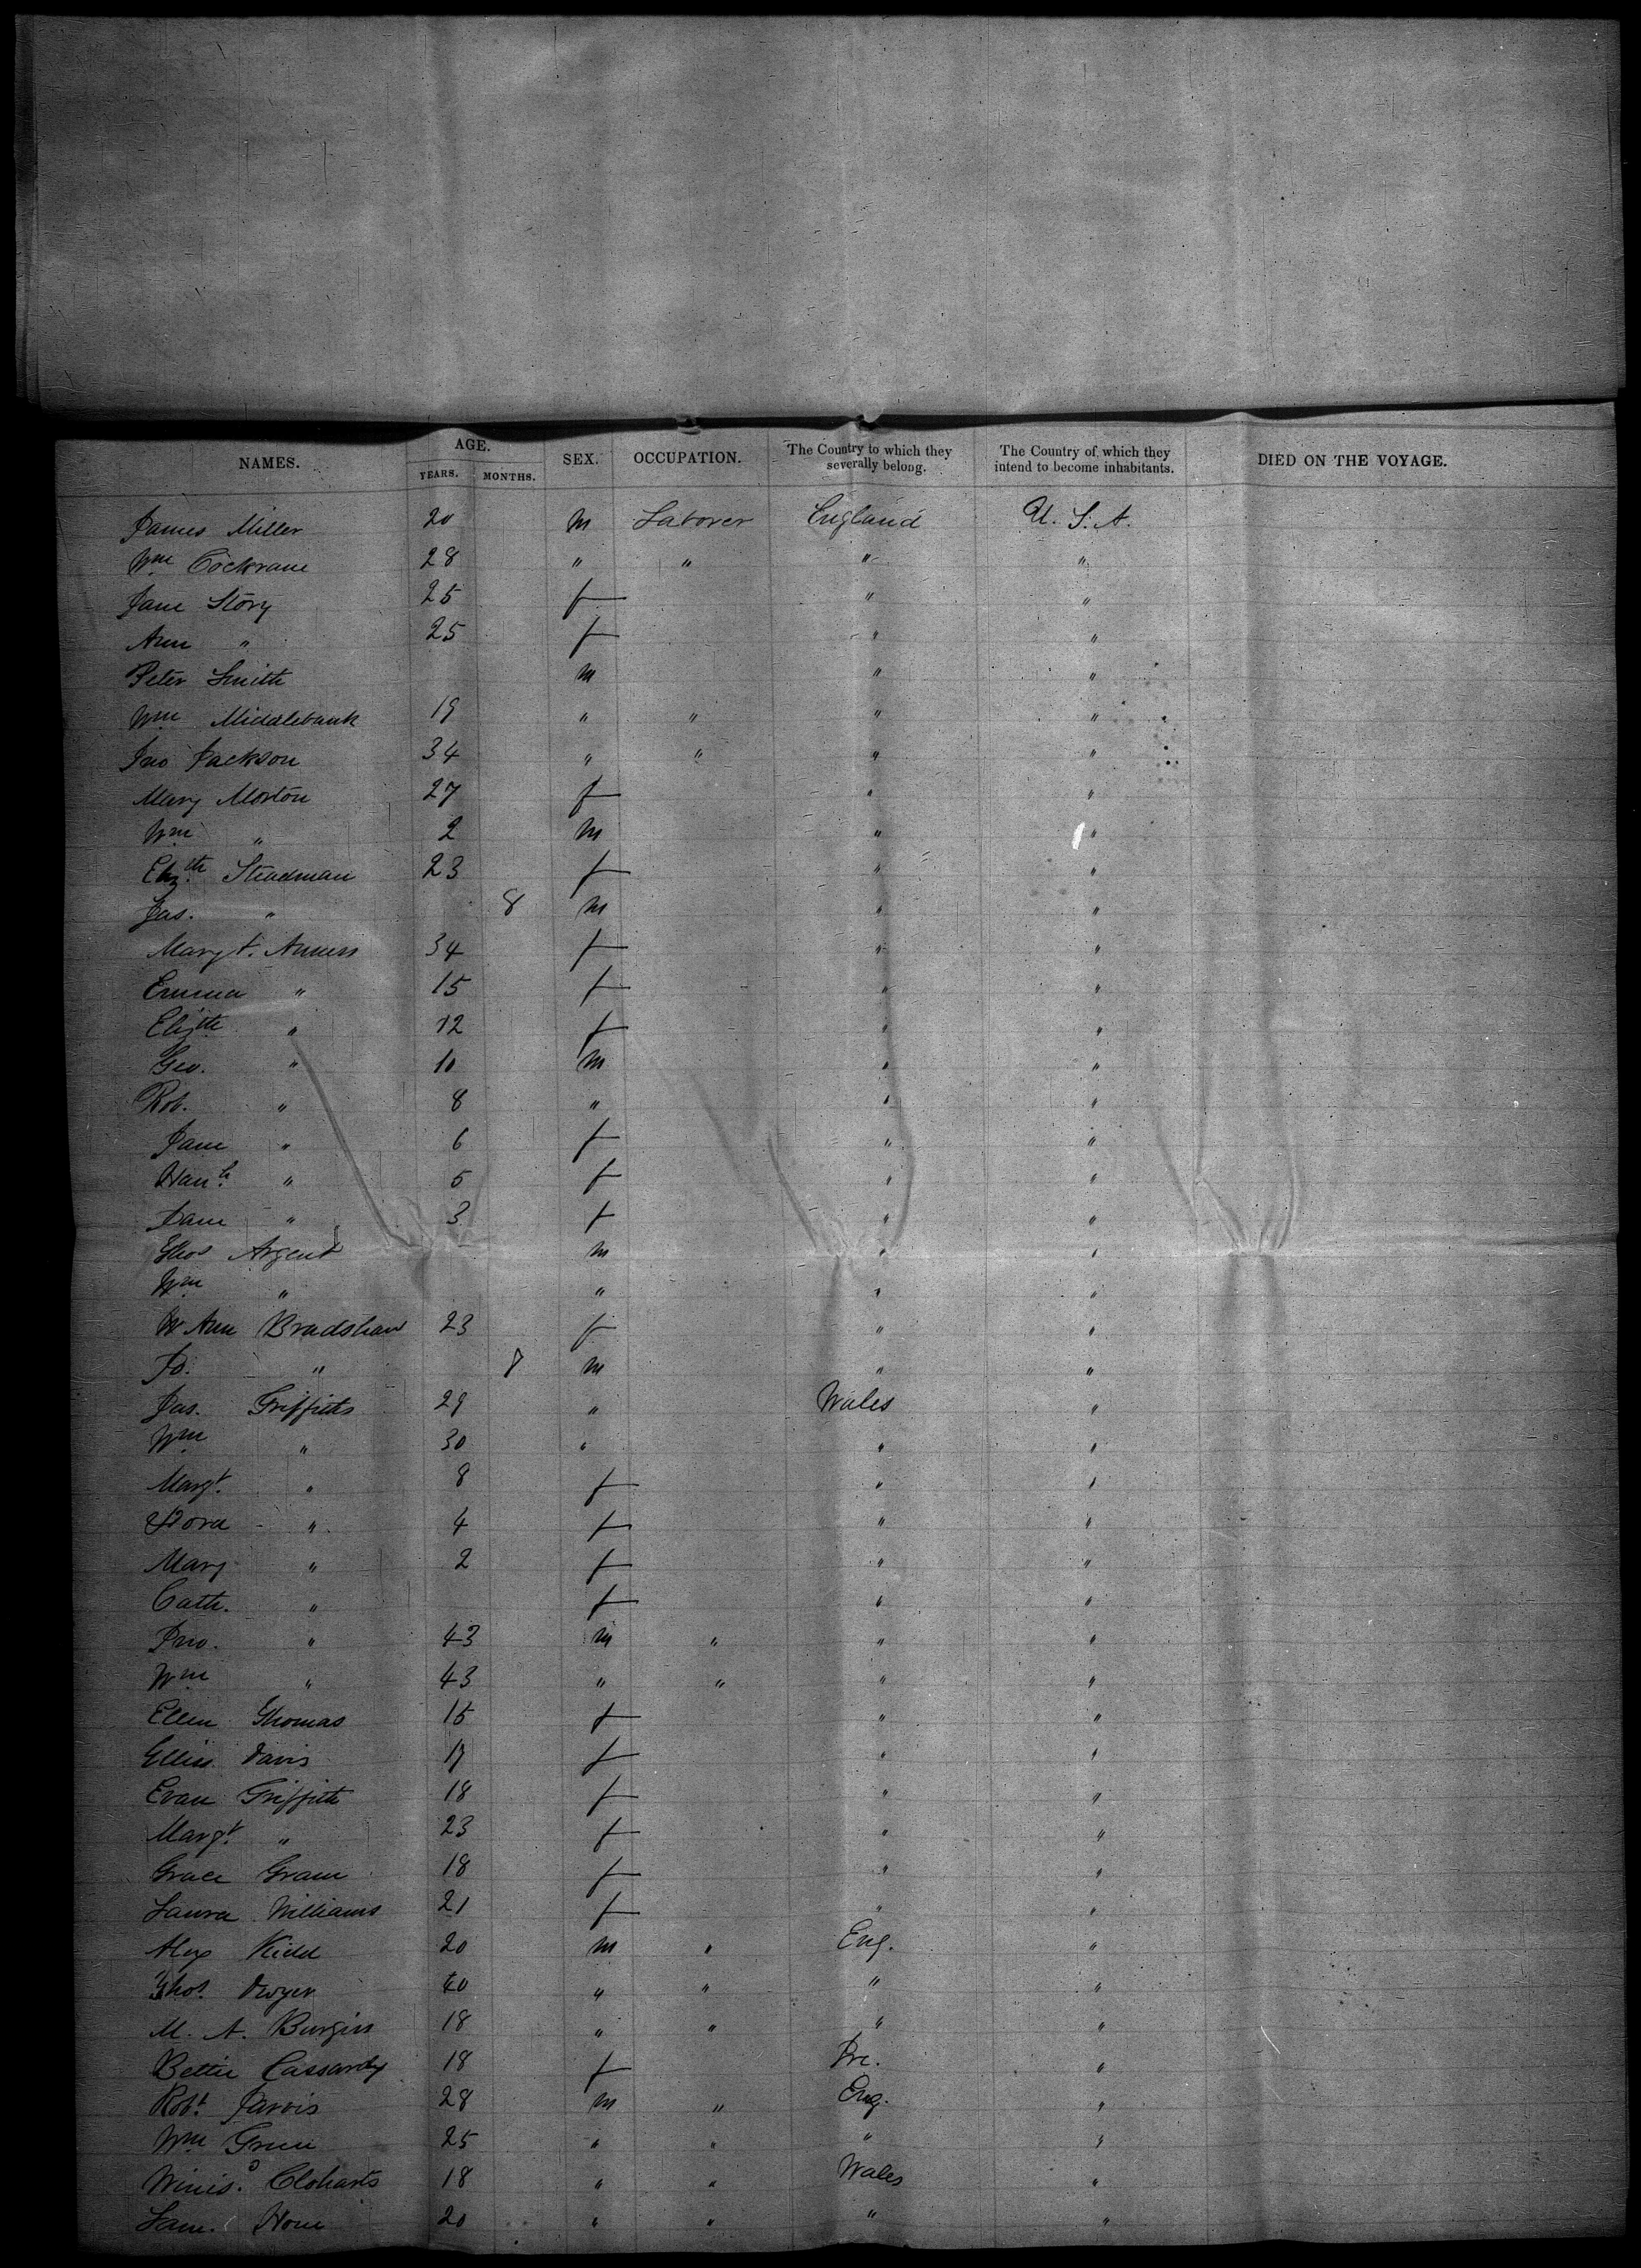 NAMES. AGE. YEARS. MONTHS. SEX. OCCUPATION. The Country to which they severally belong. The Country of which they intend to become inhabitants. DIED ON THE VOYAGE.
James Miller 20 m Laborer England U.S.A.
Wm Cockrane 28 " " " "
Jane Story 25 f " "
Ann " 25 f " "
Peter Smith m " "
Wm Middlebank 19 " " " "
Jno Jackson 34 " " " "
Mary Morton 27 f " "
Wm " 2 m " "
Elizth Steadman 23 f " "
Jas. " 8 m " "
Margt. 34 f " "
Emma " 15 f " "
Elizth " 12 f " "
Geo. " 10 m " "
Rob. " 8 " " "
Jane " 6 f " "
Hanh " 5 f " "
Jane " 3 f " "
Thos Argent m " "
Wm " " " "
Ann Bradshaw 23 f " "
" 8 m " "
Jas. Griffiths 29 " Wales "
Wm " 30 " " "
Margt. " 8 f " "
Dora " 4 f " "
Mary " 2 f " "
Cath. " f " "
Jno. " 43 m " " "
Wm " 43 " " " "
Ellen Thomas 15 f " "
Davis 17 f " "
Evan Griffith 18 f " "
Margt. " 23 f " "
Grace 18 f " "
Laura Williams 21 f " "
Alex Kidd 20 m " Eng. "
Thos. Dwyer 40 " " " "
M. A. Burgin 18 " " " "
Bettie Cassardy 18 f Ire. "
Robt. Jarvis 28 m " Eng. "
Wm Green 25 " " " "
18 " " Wales "
Sam. 20 " " " "